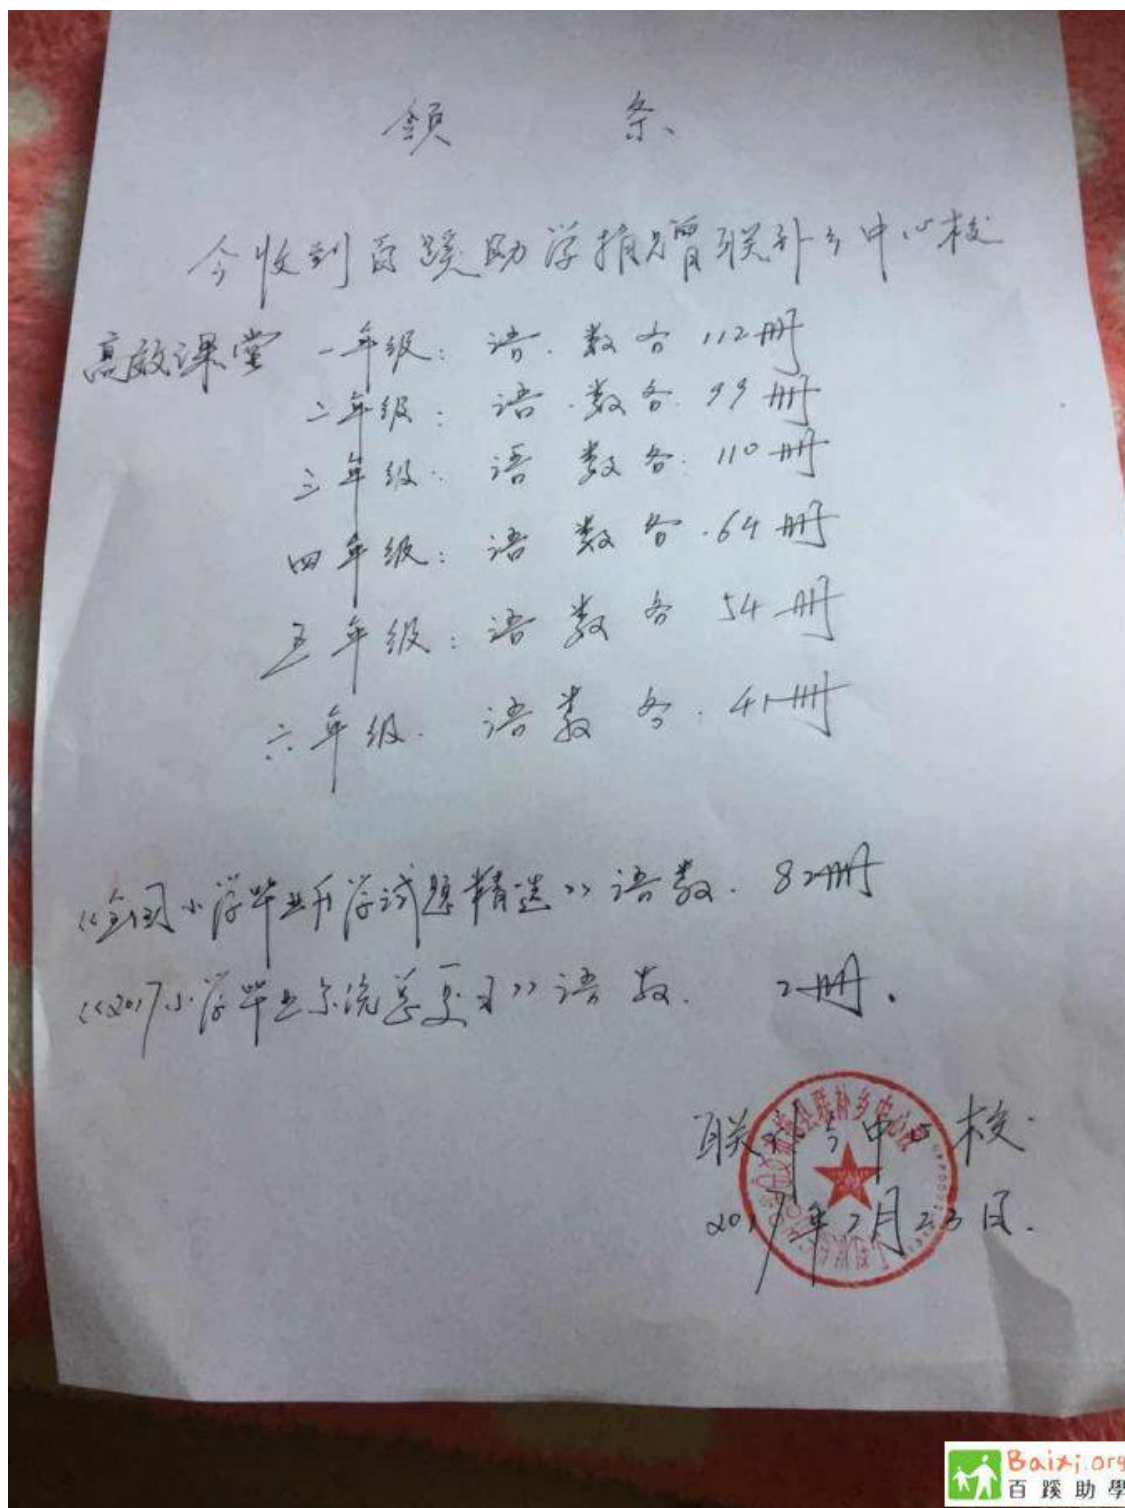 领 条
今收到百蹊助学捐赠联补乡中心校
高效课堂 一年级：语．数各 112册
二年级：语．数各．99册
三年级：语 数各：110册
四年级：语 数各．64册
五年级：语 数各 54册
六年级．语数各．41册
《全国小学毕业升学试题精选》语数．82册
《2017小学毕业系统总复习》语数．2册．
联补乡中心校
2017年2月23日．
县联补乡中心校
Baixi.org
百蹊助學